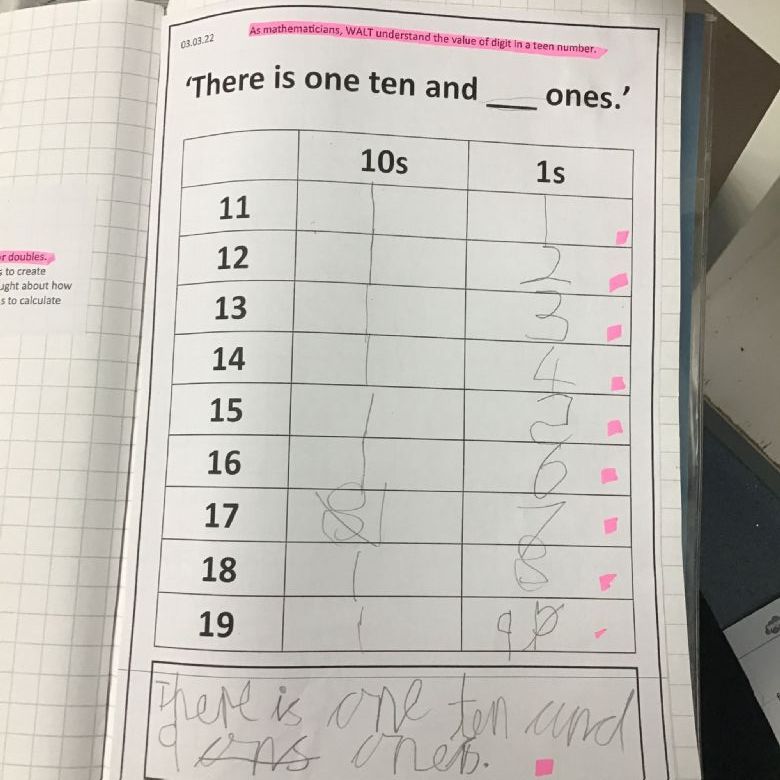 03.03.22
As mathematicians, WALT understand the value of digit in a teen number.
'There is one ten and ___ ones.'
10s 1s
11 1 1
12 1 2
13 1 3
14 1 4
15 1 5
16 1 6
17 1 7
18 1 8
19 1 9
There is one ten and
9 ones.
r doubles.
s to create
ught about how
s to calculate